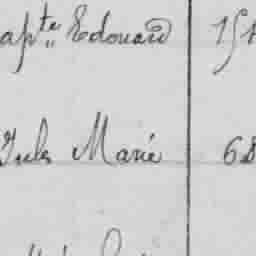 apte Edouard 151
Jules Marie 68